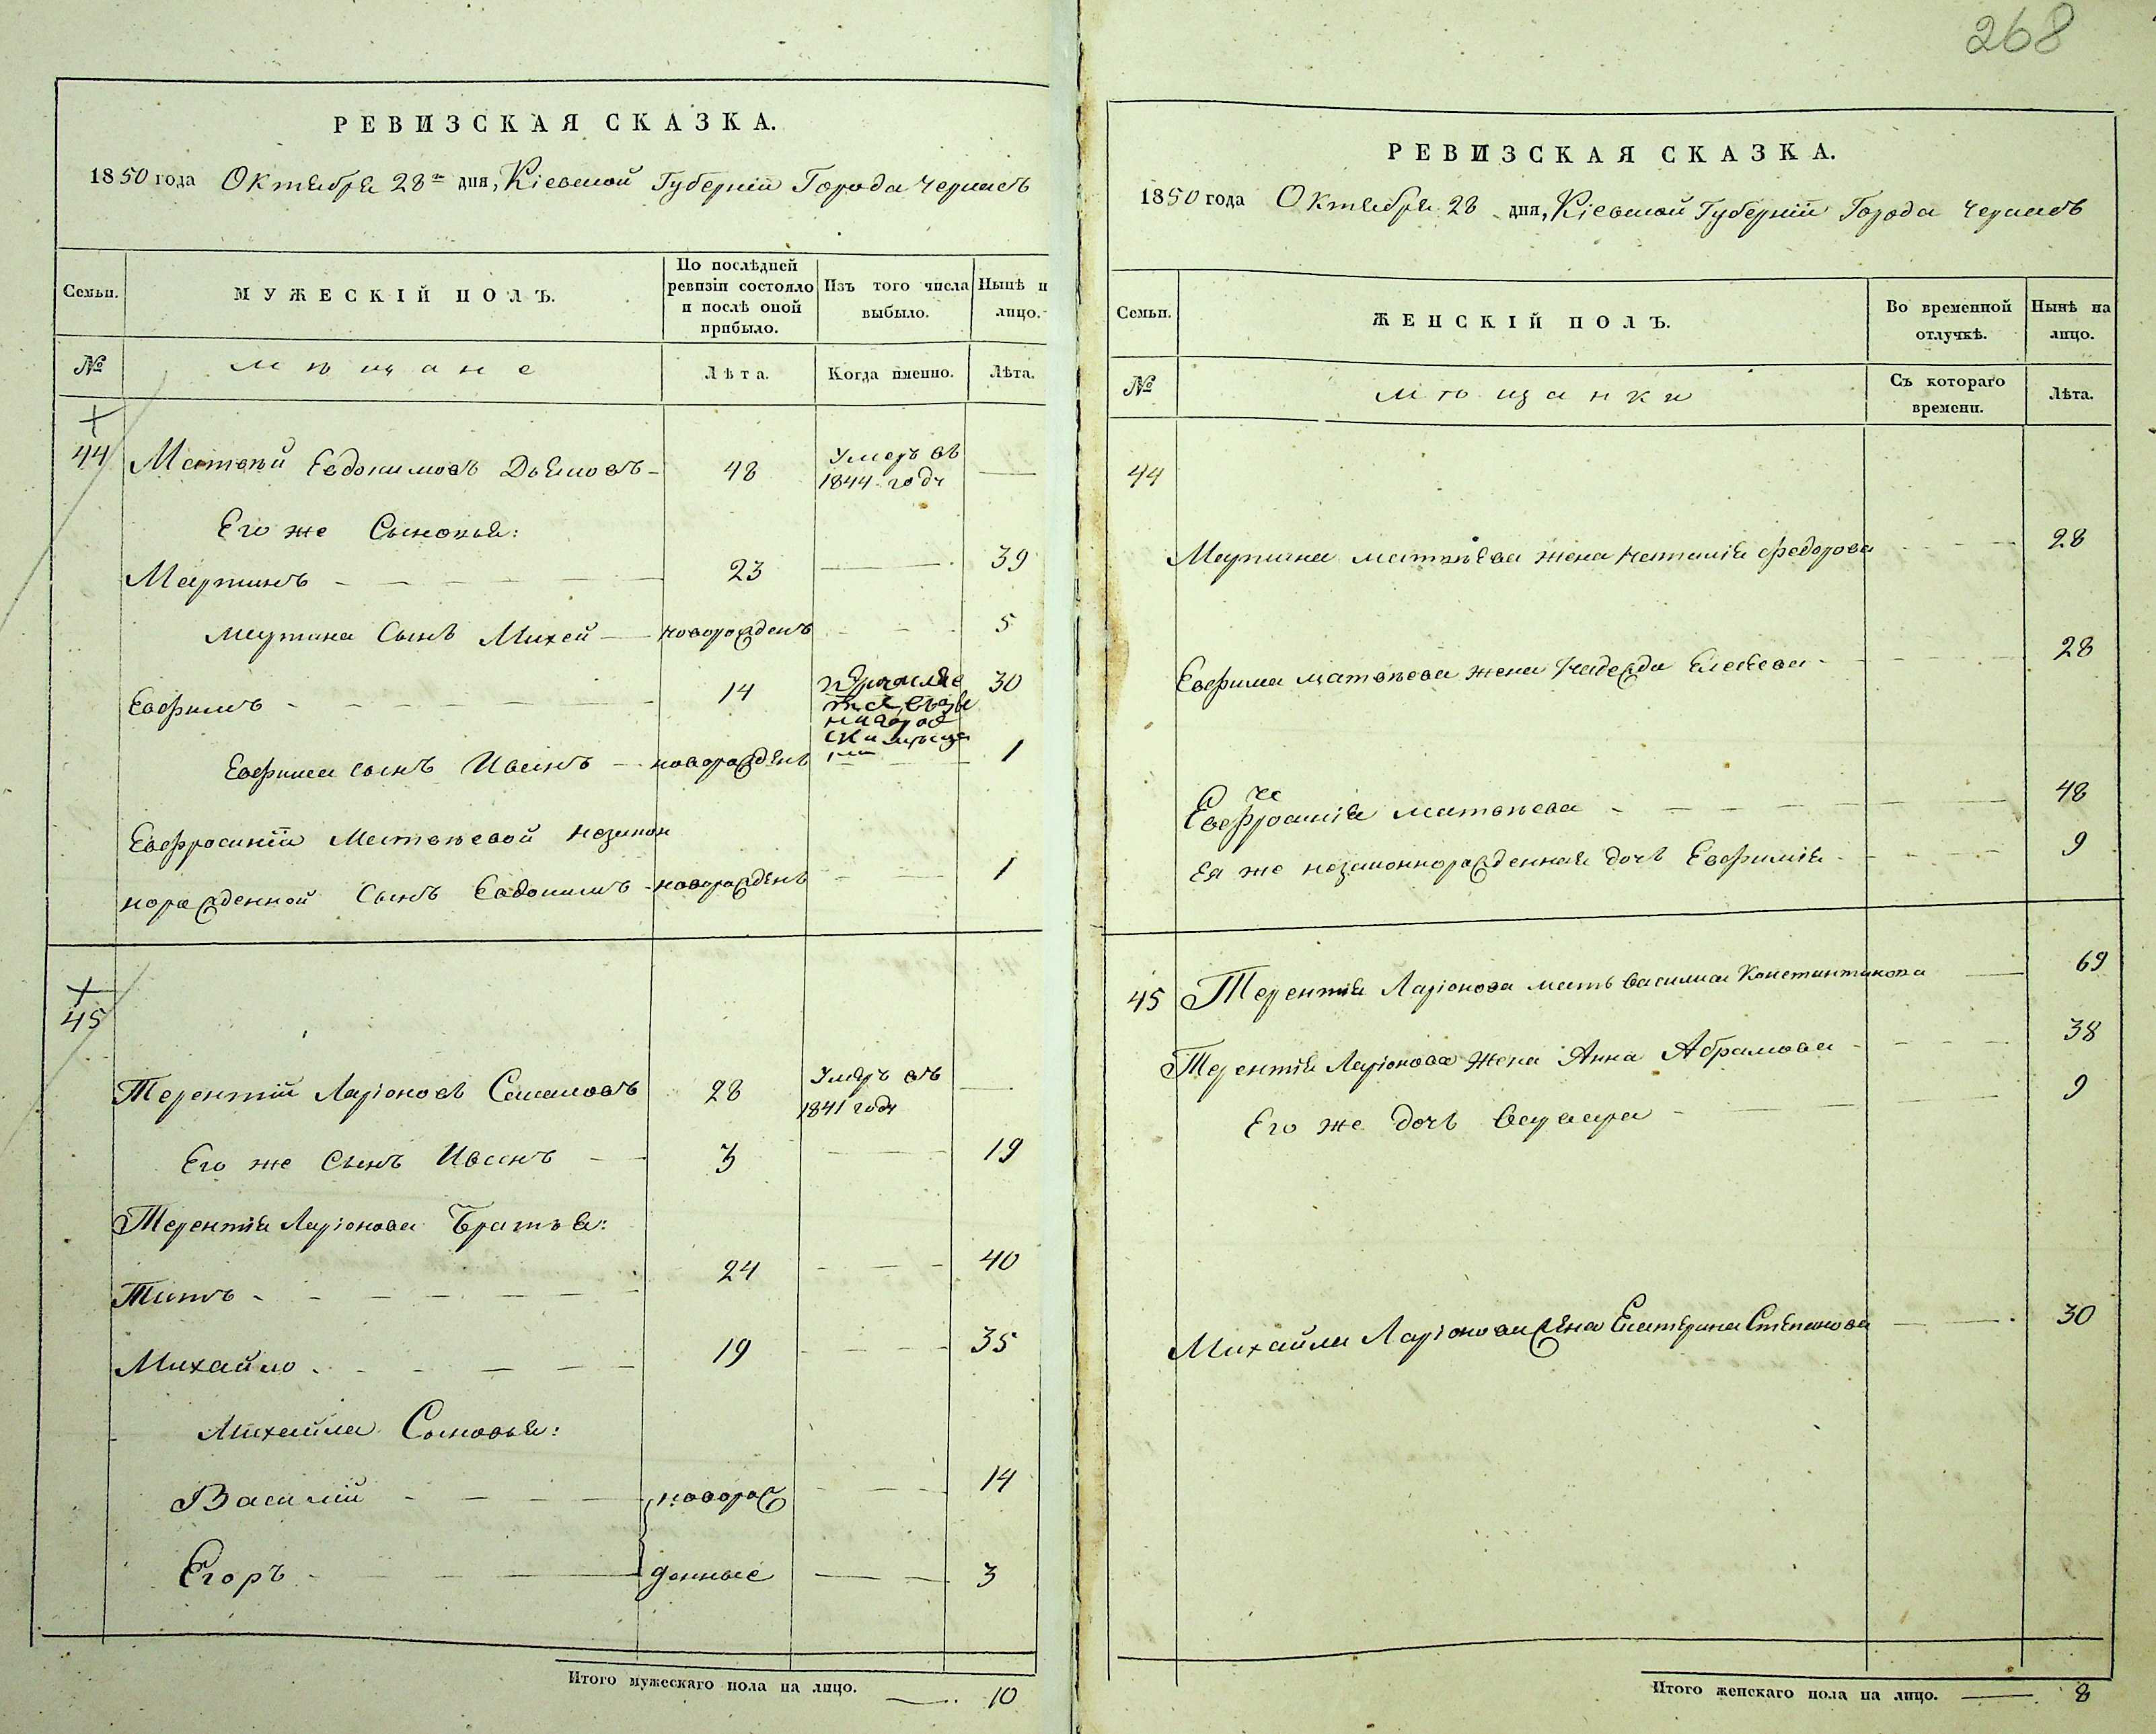 268
РЕВИЗСКАЯ СКАЗКА.
1850 года Октября 28го дня, Кіевской Губерніи Города Черкасъ
Семьи.
МУЖЕСКІЙ ПОЛЪ.
По послѣдней
ревизіи состояло
и послѣ оной
прибыло.
Изъ того числа
выбыло.
Нынѣ н
лицо.
№
мѣщане
Лѣта.
Когда именно.
Лѣта.
44 Матвѣй Евдокимовъ 48 Умеръ въ
1844 годѵ
Его же Сыновья:
Мартинъ 23 39
Мартина Сынъ Михей новорожденъ 5
Евфимъ 14 30
Евфима сынъ Иванъ новорожденъ 1
Евфросиніи Матвѣевой незакон
норожденной Сынъ Евдокимъ новорожденъ 1
45
Терентій Ларіоновъ 28 Умеръ въ
1841 годѵ
Его же Сынъ Иванъ 3 19
Терентія Ларіонова Братья:
Титъ 24 40
Михайло 19 35
Михайла Сыновья:
Василій новорож 14
Егоръ денные 3
Итого мужескаго пола на лицо. 10
РЕВИЗСКАЯ СКАЗКА.
1850 года Октября 28 дня, Кіевской Губерніи Города Черкасъ
Семьи.
ЖЕНСКІЙ ПОЛЪ.
Во временной
отлучкѣ.
Нынѣ на
лицо.
№
мѣщанки
Съ котораго
времени.
Лѣта.
44
Мартина Матвѣева жена Наталія Федорова 28
Евфима Матвѣева жена Надежда 28
Евфросинія Матвѣева 48
Ея же незаконнорожденная дочь Евфимія 9
45 Терентія Ларіонова мать Василиса Константинова 69
Терентія Ларіонова Жена Анна Абрамова 38
Его же дочь Варвара 9
Михайла Ларіонова жена Екатерина Степанова 30
Итого женскаго пола на лицо. 8